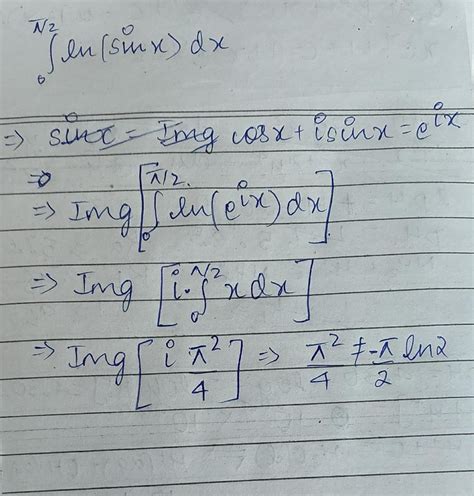 π/2
∫ ln(sinx) dx
0
⇒ sinx = Img cosx + isinx = e^ix
⇒
⇒ Img [ π/2 ∫ 0 ln(e^ix) dx ]
⇒ Img [ i· π/2 ∫ 0 x dx ]
⇒ Img [ i π²/4 ] ⇒ π²/4 ≠ -π/2 ln2